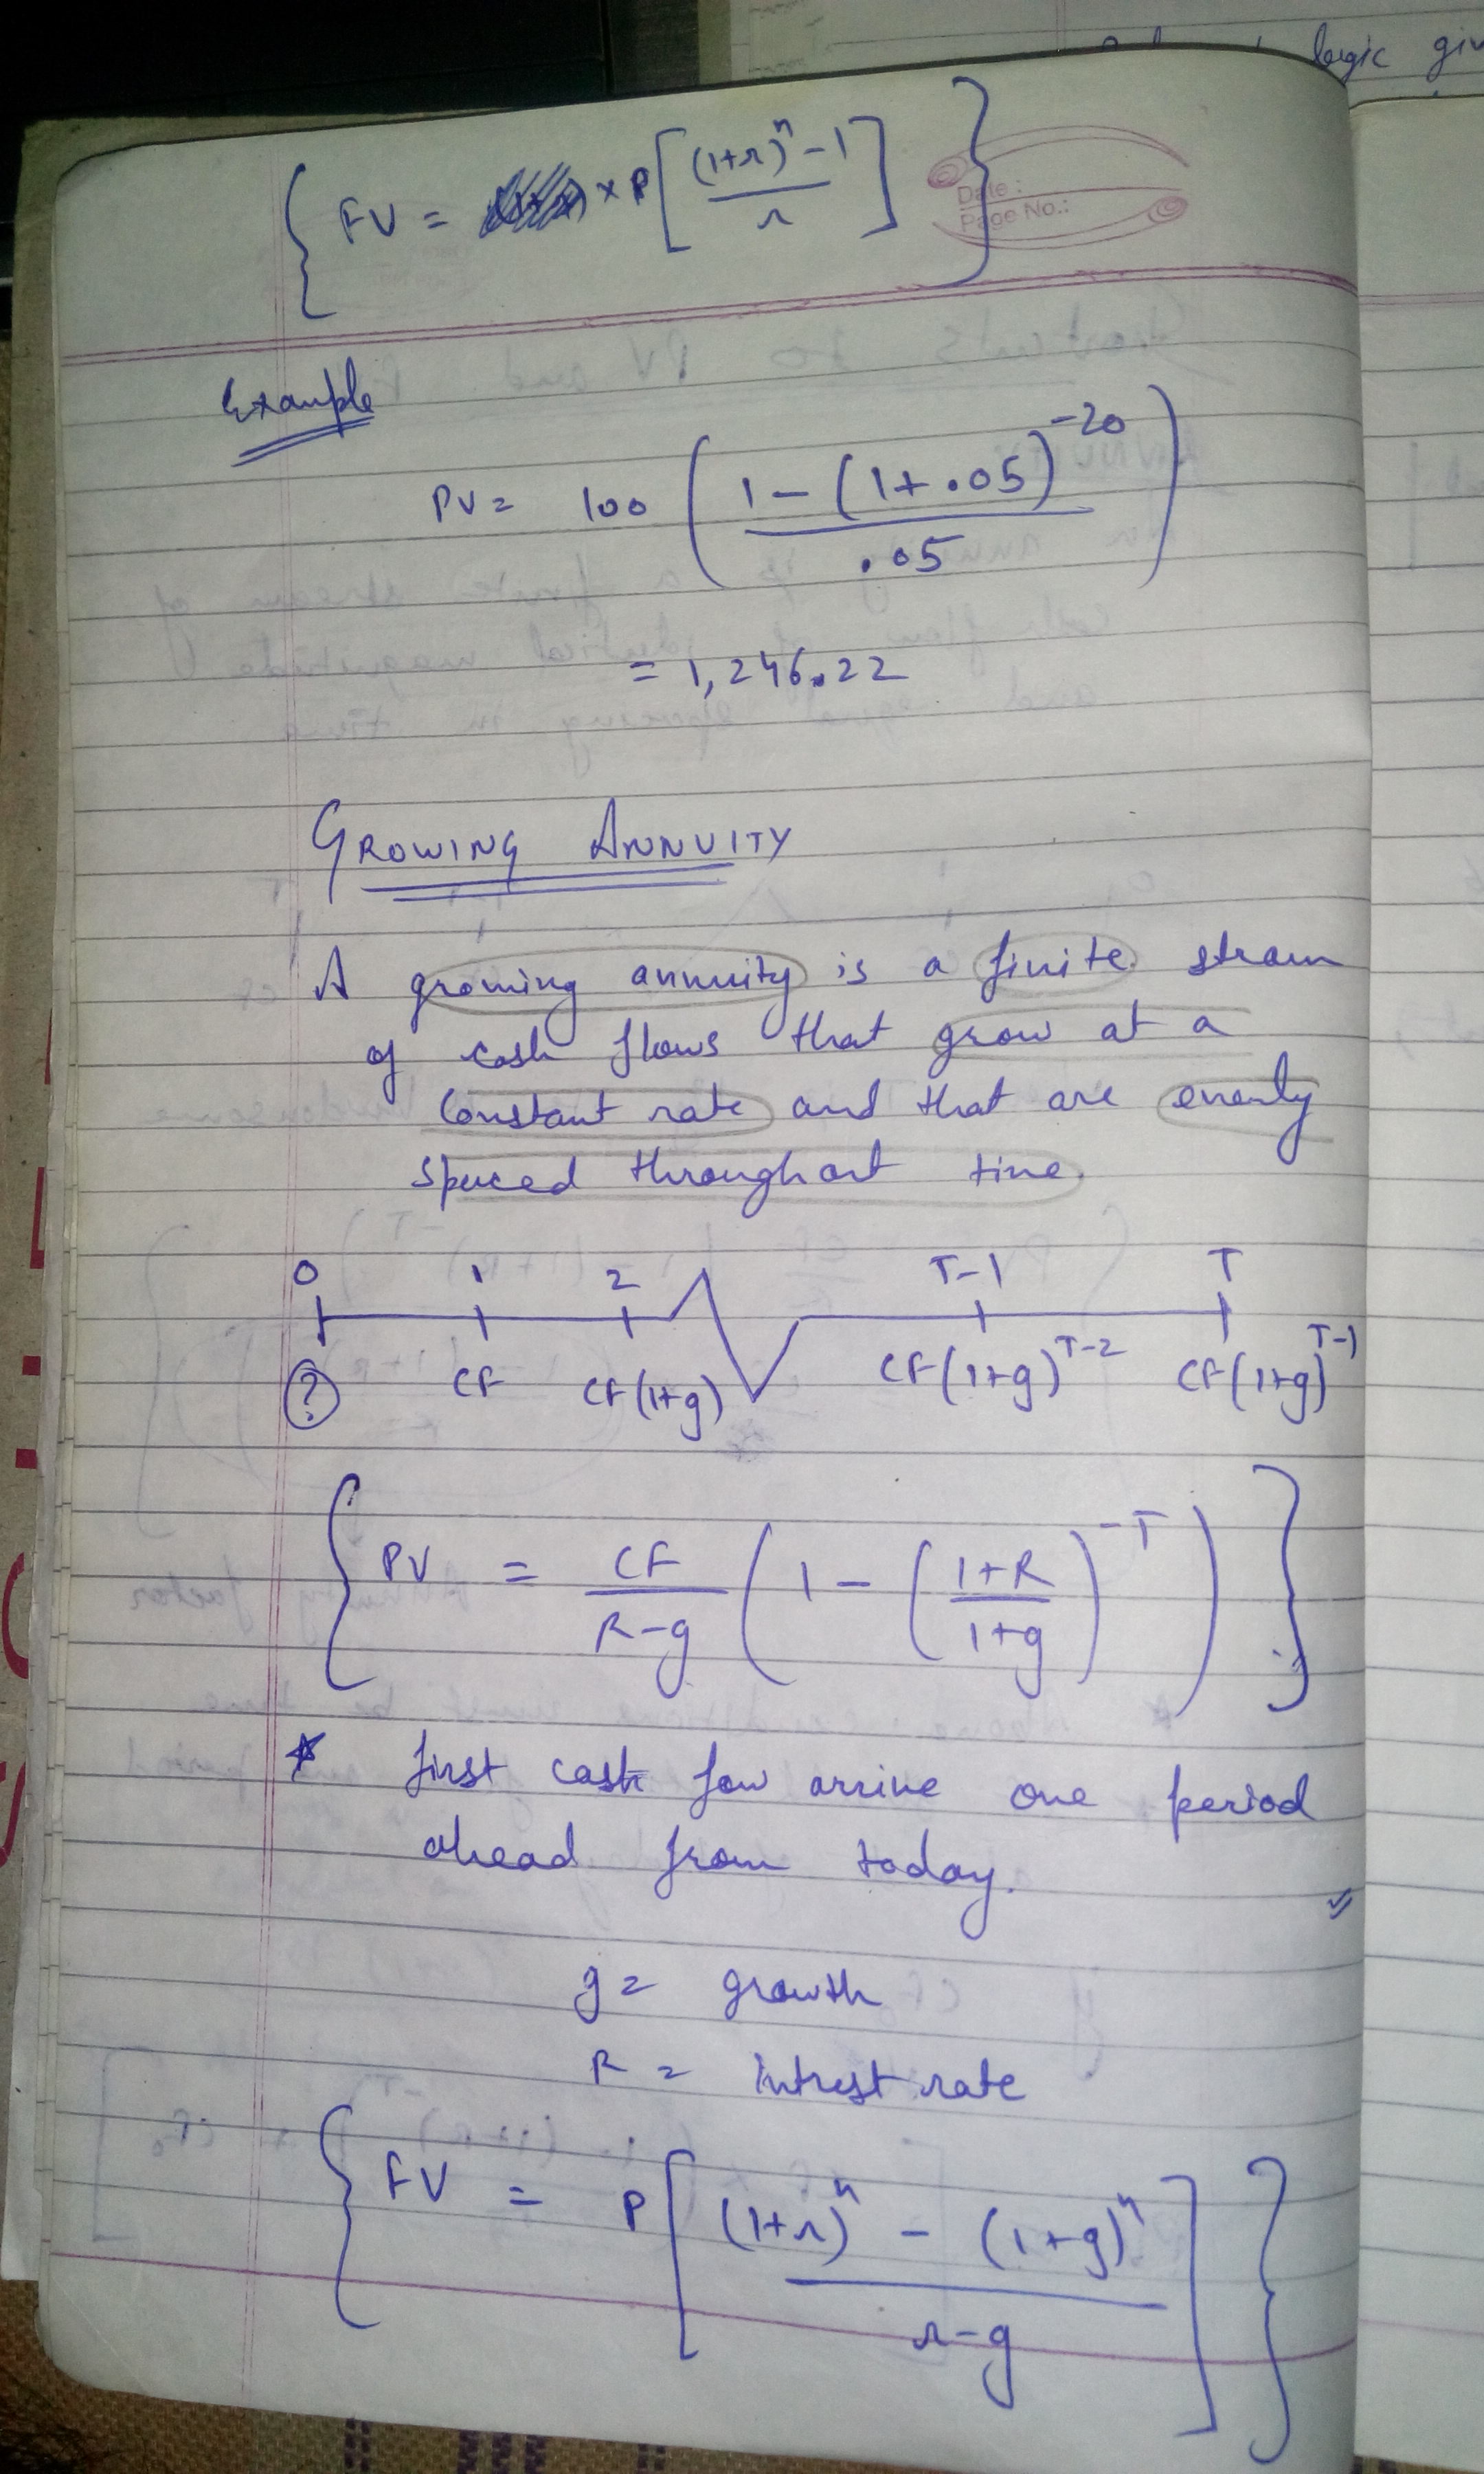 logic
FV = × P [ (1+r)^n - 1 / r ]
Date :
Page No.:
Example
PV = 100 ( 1 - (1+.05)^-20 / .05 )
= 1,246.22
GROWING ANNUITY
A growing annuity is a finite stream
of cash flows that grow at a
constant rate and that are evenly
spaced throughout time.
0 1 2 T-1 T
? CF CF(1+g) CF(1+g)^T-2 CF(1+g)^T-1
{ PV = CF / R-g ( 1 - ( 1+R / 1+g )^-T ) }
* first cash fow arrive one period
ahead from today.
g = growth
R = Intrest rate
{ FV = P [ (1+r)^n - (1+g)^n / r-g ] }